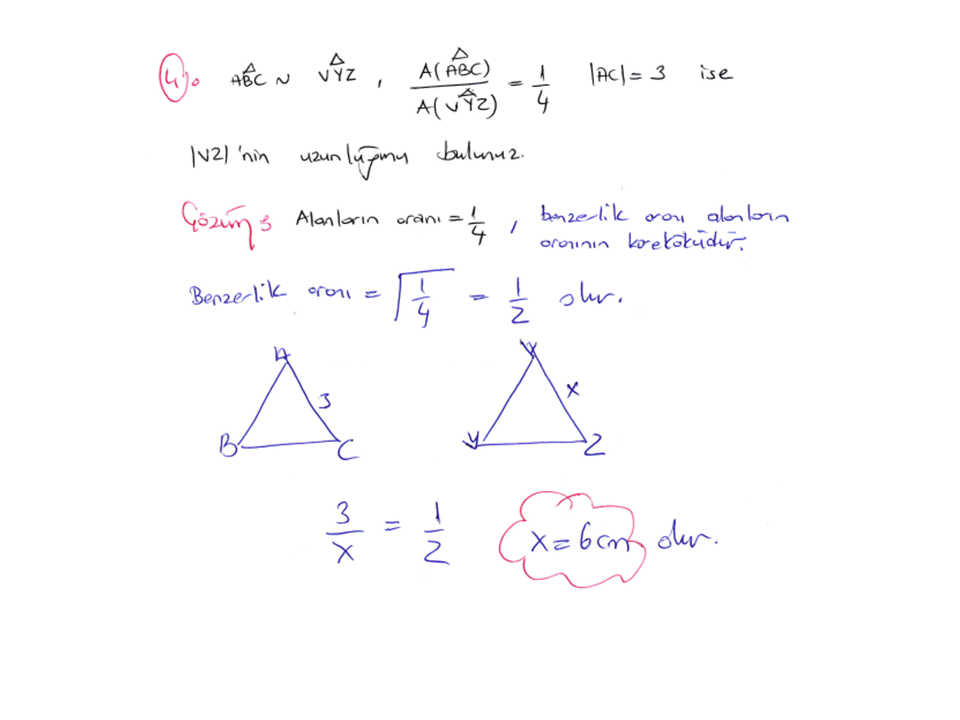 4) ABC ~ VYZ , A(ABC)/A(VYZ) = 1/4 |AC| = 3 ise
|VZ|'nin uzunluğunu bulunuz.
Çözüm: Alanların oranı = 1/4 , benzerlik oranı alanların
oranının kareköküdür.
Benzerlik oranı = √1/4 = 1/2 olur.
A V
3 x
B C Y Z
3/x = 1/2 x = 6 cm olur.